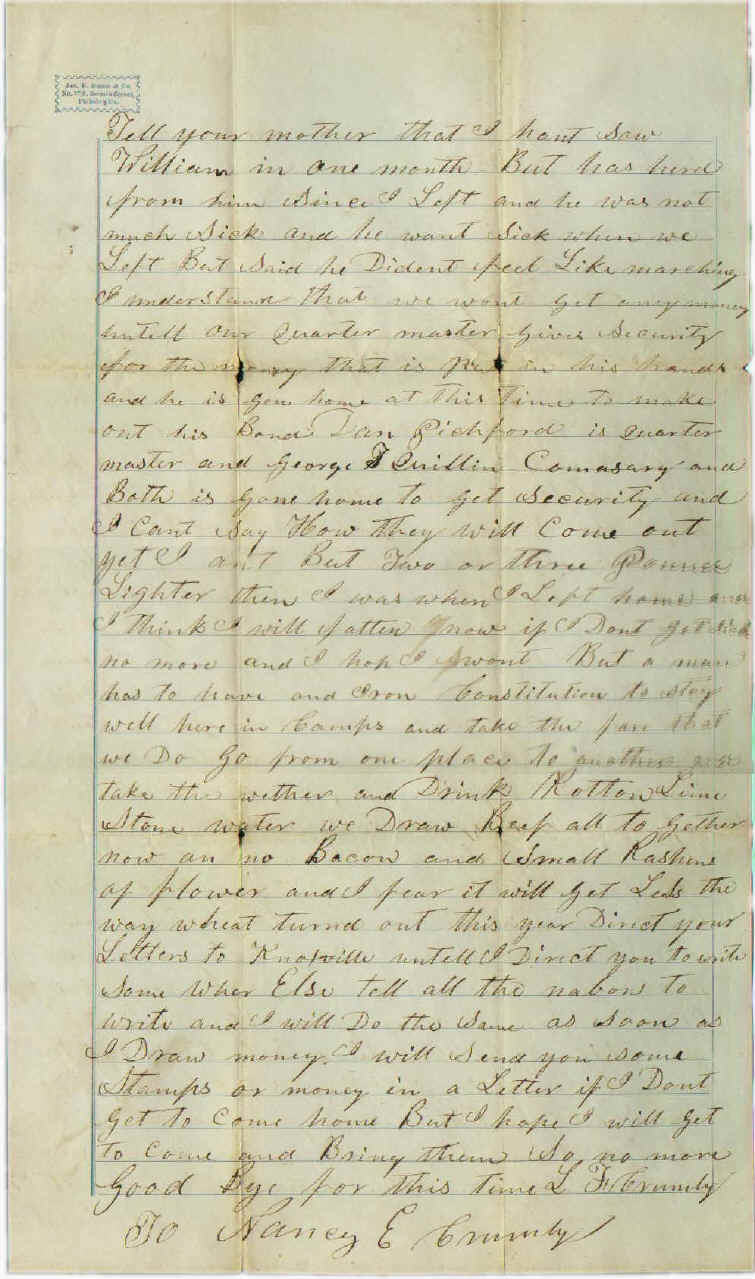 Tell your mother that I hant saw
William in one month But has herd
from him since I Left and he was not
much sick and he want sick when we
Left But said he Dident feel Like marching
I understand that we wont get any money
untell our quarter master gives security
for the money that is put in his hands
and he is gon home at this time to make
out his Bond Dan Pickford is quarter
master and George T Quillin Comasary and
Both is gone home to get security and
I cant say How they will come out
yet I ant But Two or three
Lighter then I was when I Left home and
I think I will fatten now if I Dont get sick
no more and I hop I wont But a man
has to have and iron Constitution to stay
well here in Camps and take the fair that
we Do Go from one place to another and
take the wether and Drink Rotton Lime
Stone water we Draw Beef all to gether
now an no Bacon and small Rashens
of flower and I fear it will get Less the
way wheat turnd out this year Direct your
Letters to Knoxville untell I Direct you to write
some wher Else tell all the nabors to
write and I will Do the same as soon as
I Draw money. I will send you some
Stamps or money in a Letter if I Dont
get to come home But I hope I will get
to come and Bring them So no more
Good Bye for this time L F Crumly
To Nancy E Crumly